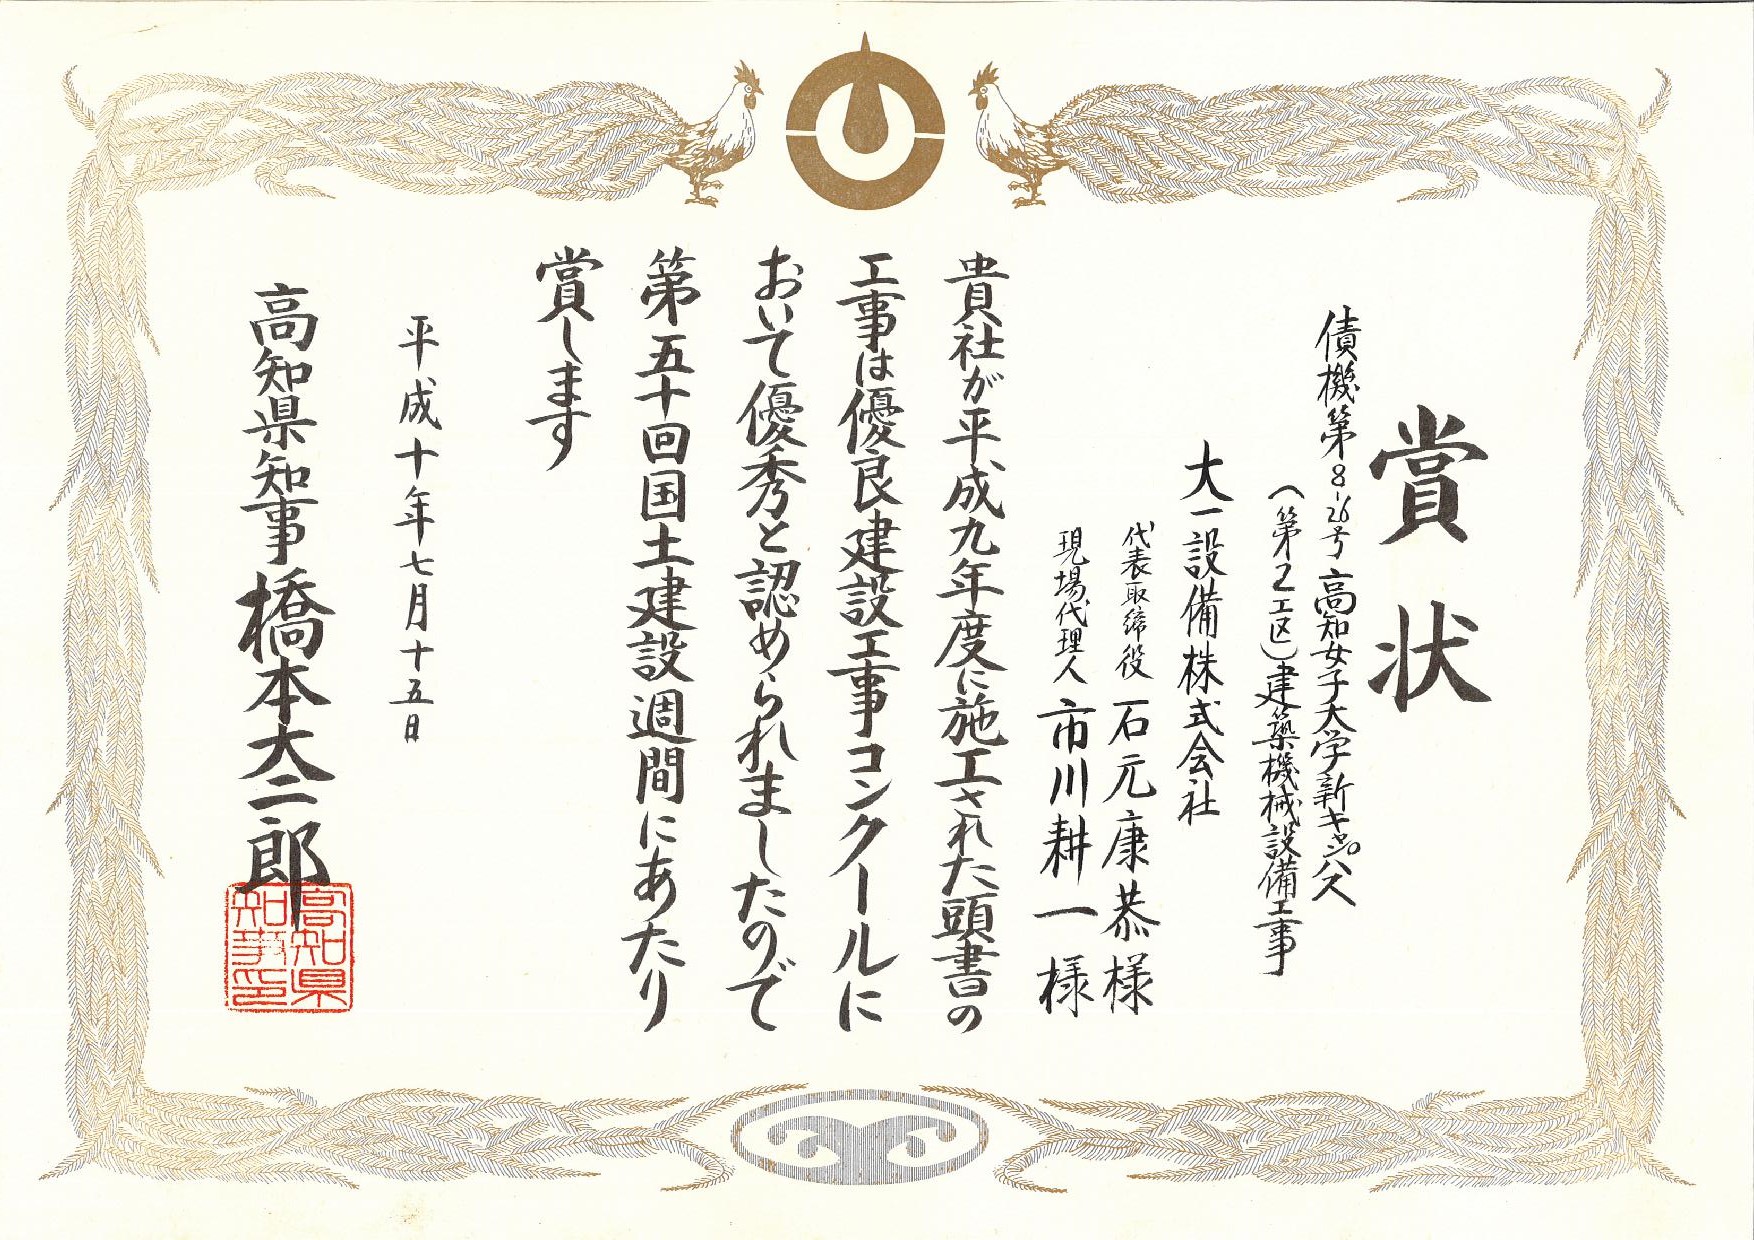 賞状
債機第8-26号高知女子大学新キャンパス
(第2工区)建築機械設備工事
大一設備株式会社
代表取締役 石元康恭様
現場代理人 市川耕一様
貴社が平成九年度に施工された頭書の
工事は優良建設工事コンクールに
おいて優秀と認められましたので
第五十回国土建設週間にあたり
賞します
平成十年七月十五日
高知県知事 橋本大二郎
高知県
知事印